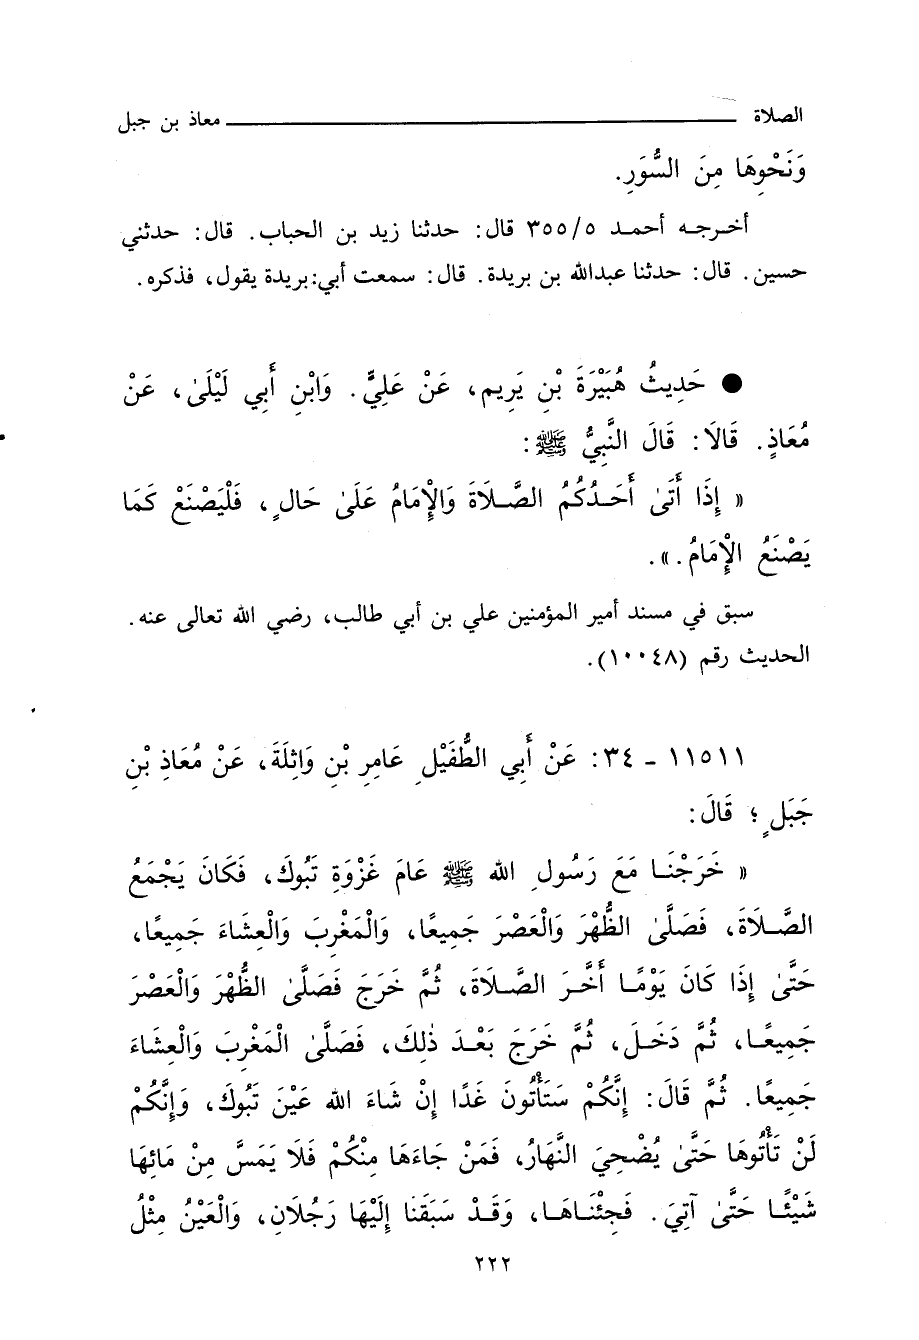 الصلاة ــــــــــــــــ معاذ بن جبل
وَنَحْوِهَا مِنَ السُّوَرِ.
أخرجه أحمد ٣٥٥/٥ قال: حدثنا زيد بن الحباب. قال: حدثني
حسين. قال: حدثنا عبدالله بن بريدة. قال: سمعت أبي:بريدة يقول، فذكره.
● حَدِيثُ هُبَيْرَةَ بْنِ يَرِيم، عَنْ عَلِيٍّ. وَابْنِ أَبِي لَيْلَىٰ، عَنْ
مُعَاذٍ. قَالَا: قَالَ النَّبِيُّ ﷺ:
« إِذَا أَتَىٰ أَحَدُكُمُ الصَّلَاةَ وَالْإِمَامُ عَلَىٰ حَالٍ، فَلْيَصْنَعْ كَمَا
يَصْنَعُ الْإِمَامُ.».
سبق في مسند أمير المؤمنين علي بن أبي طالب، رضي الله تعالى عنه.
الحديث رقم (١٠٠٤٨).
١١٥١١ - ٣٤: عَنْ أَبِي الطُّفَيْلِ عَامِرِ بْنِ وَاثِلَةَ، عَنْ مُعَاذِ بْنِ
جَبَلٍ؛ قَالَ:
« خَرَجْنَا مَعَ رَسُولِ الله ﷺ عَامَ غَزْوَةِ تَبُوكَ، فَكَانَ يَجْمَعُ
الصَّلَاةَ، فَصَلَّىٰ الظُّهْرَ وَالْعَصْرَ جَمِيعًا، وَالْمَغْرِبَ وَالْعِشَاءَ جَمِيعًا،
حَتَّىٰ إِذَا كَانَ يَوْمًا أَخَّرَ الصَّلَاةَ، ثُمَّ خَرَجَ فَصَلَّىٰ الظُّهْرَ وَالْعَصْرَ
جَمِيعًا، ثُمَّ دَخَلَ، ثُمَّ خَرَجَ بَعْدَ ذٰلِكَ، فَصَلَّىٰ الْمَغْرِبَ وَالْعِشَاءَ
جَمِيعًا. ثُمَّ قَالَ: إِنَّكُمْ سَتَأْتُونَ غَدًا إِنْ شَاءَ الله عَيْنَ تَبُوكَ، وَإِنَّكُمْ
لَنْ تَأْتُوهَا حَتَّىٰ يُضْحِيَ النَّهَارُ، فَمَنْ جَاءَهَا مِنْكُمْ فَلَا يَمَسَّ مِنْ مَائِهَا
شَيْئًا حَتَّىٰ آتِيَ. فَجِئْنَاهَا، وَقَدْ سَبَقَنَا إِلَيْهَا رَجُلَانِ، وَالْعَيْنُ مِثْلُ
٢٢٢